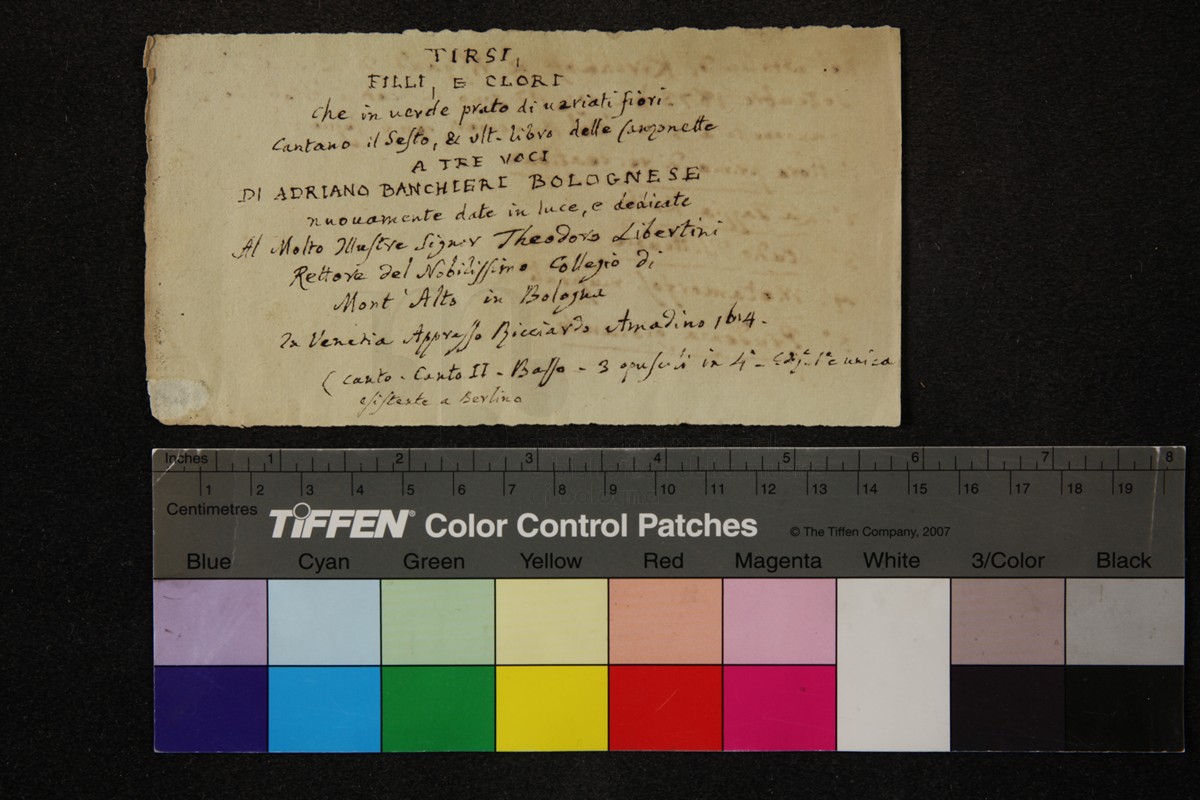 TIRSI,
FILLI, E CLORI
che in uerde prato di uariati fiori
Cantano il Sesto, & ult. libro delle Canzonette
A TRE VOCI
DI ADRIANO BANCHIERI BOLOGNESE
nuouamente date in luce, e dedicate
Al Molto Illustre Signor Theodoro Libertini
Rettore del Nobilissimo Collegio di
Mont' Alto in Bologna
In Venetia Appresso Ricciardo Amadino 1614.
(Canto - Canto II - Basso - 3 opuscoli in 4° - Ediz.e 1a e unica
esistente a Berlino
Inches 1 2 3 4 5 6 7 8
1 2 3 4 5 6 7 8 9 10 11 12 13 14 15 16 17 18 19
Centimetres
TIFFEN® Color Control Patches © The Tiffen Company, 2007
Blue Cyan Green Yellow Red Magenta White 3/Color Black